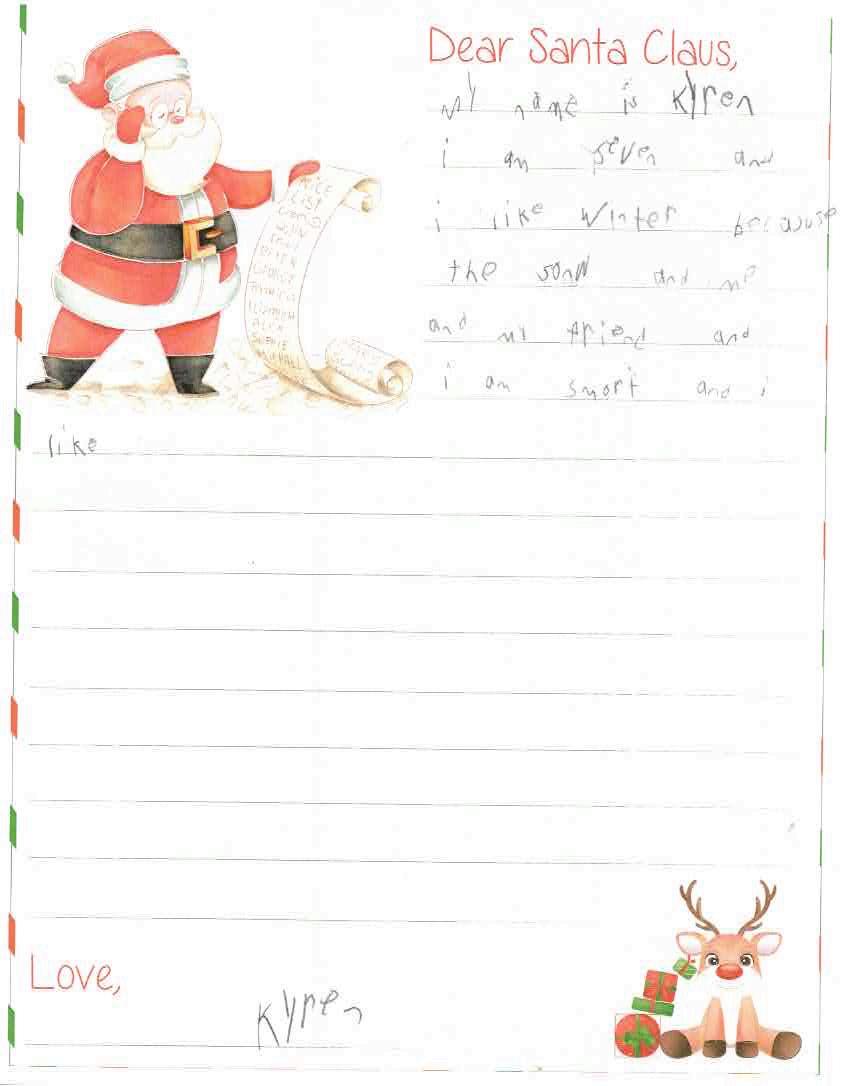 Dear Santa Claus,
My name is Kyren
i am seven and
i like winter because
the sonw and me
and my friend and
i am smort and i
like
NICE
LIST
Love,
Kyren